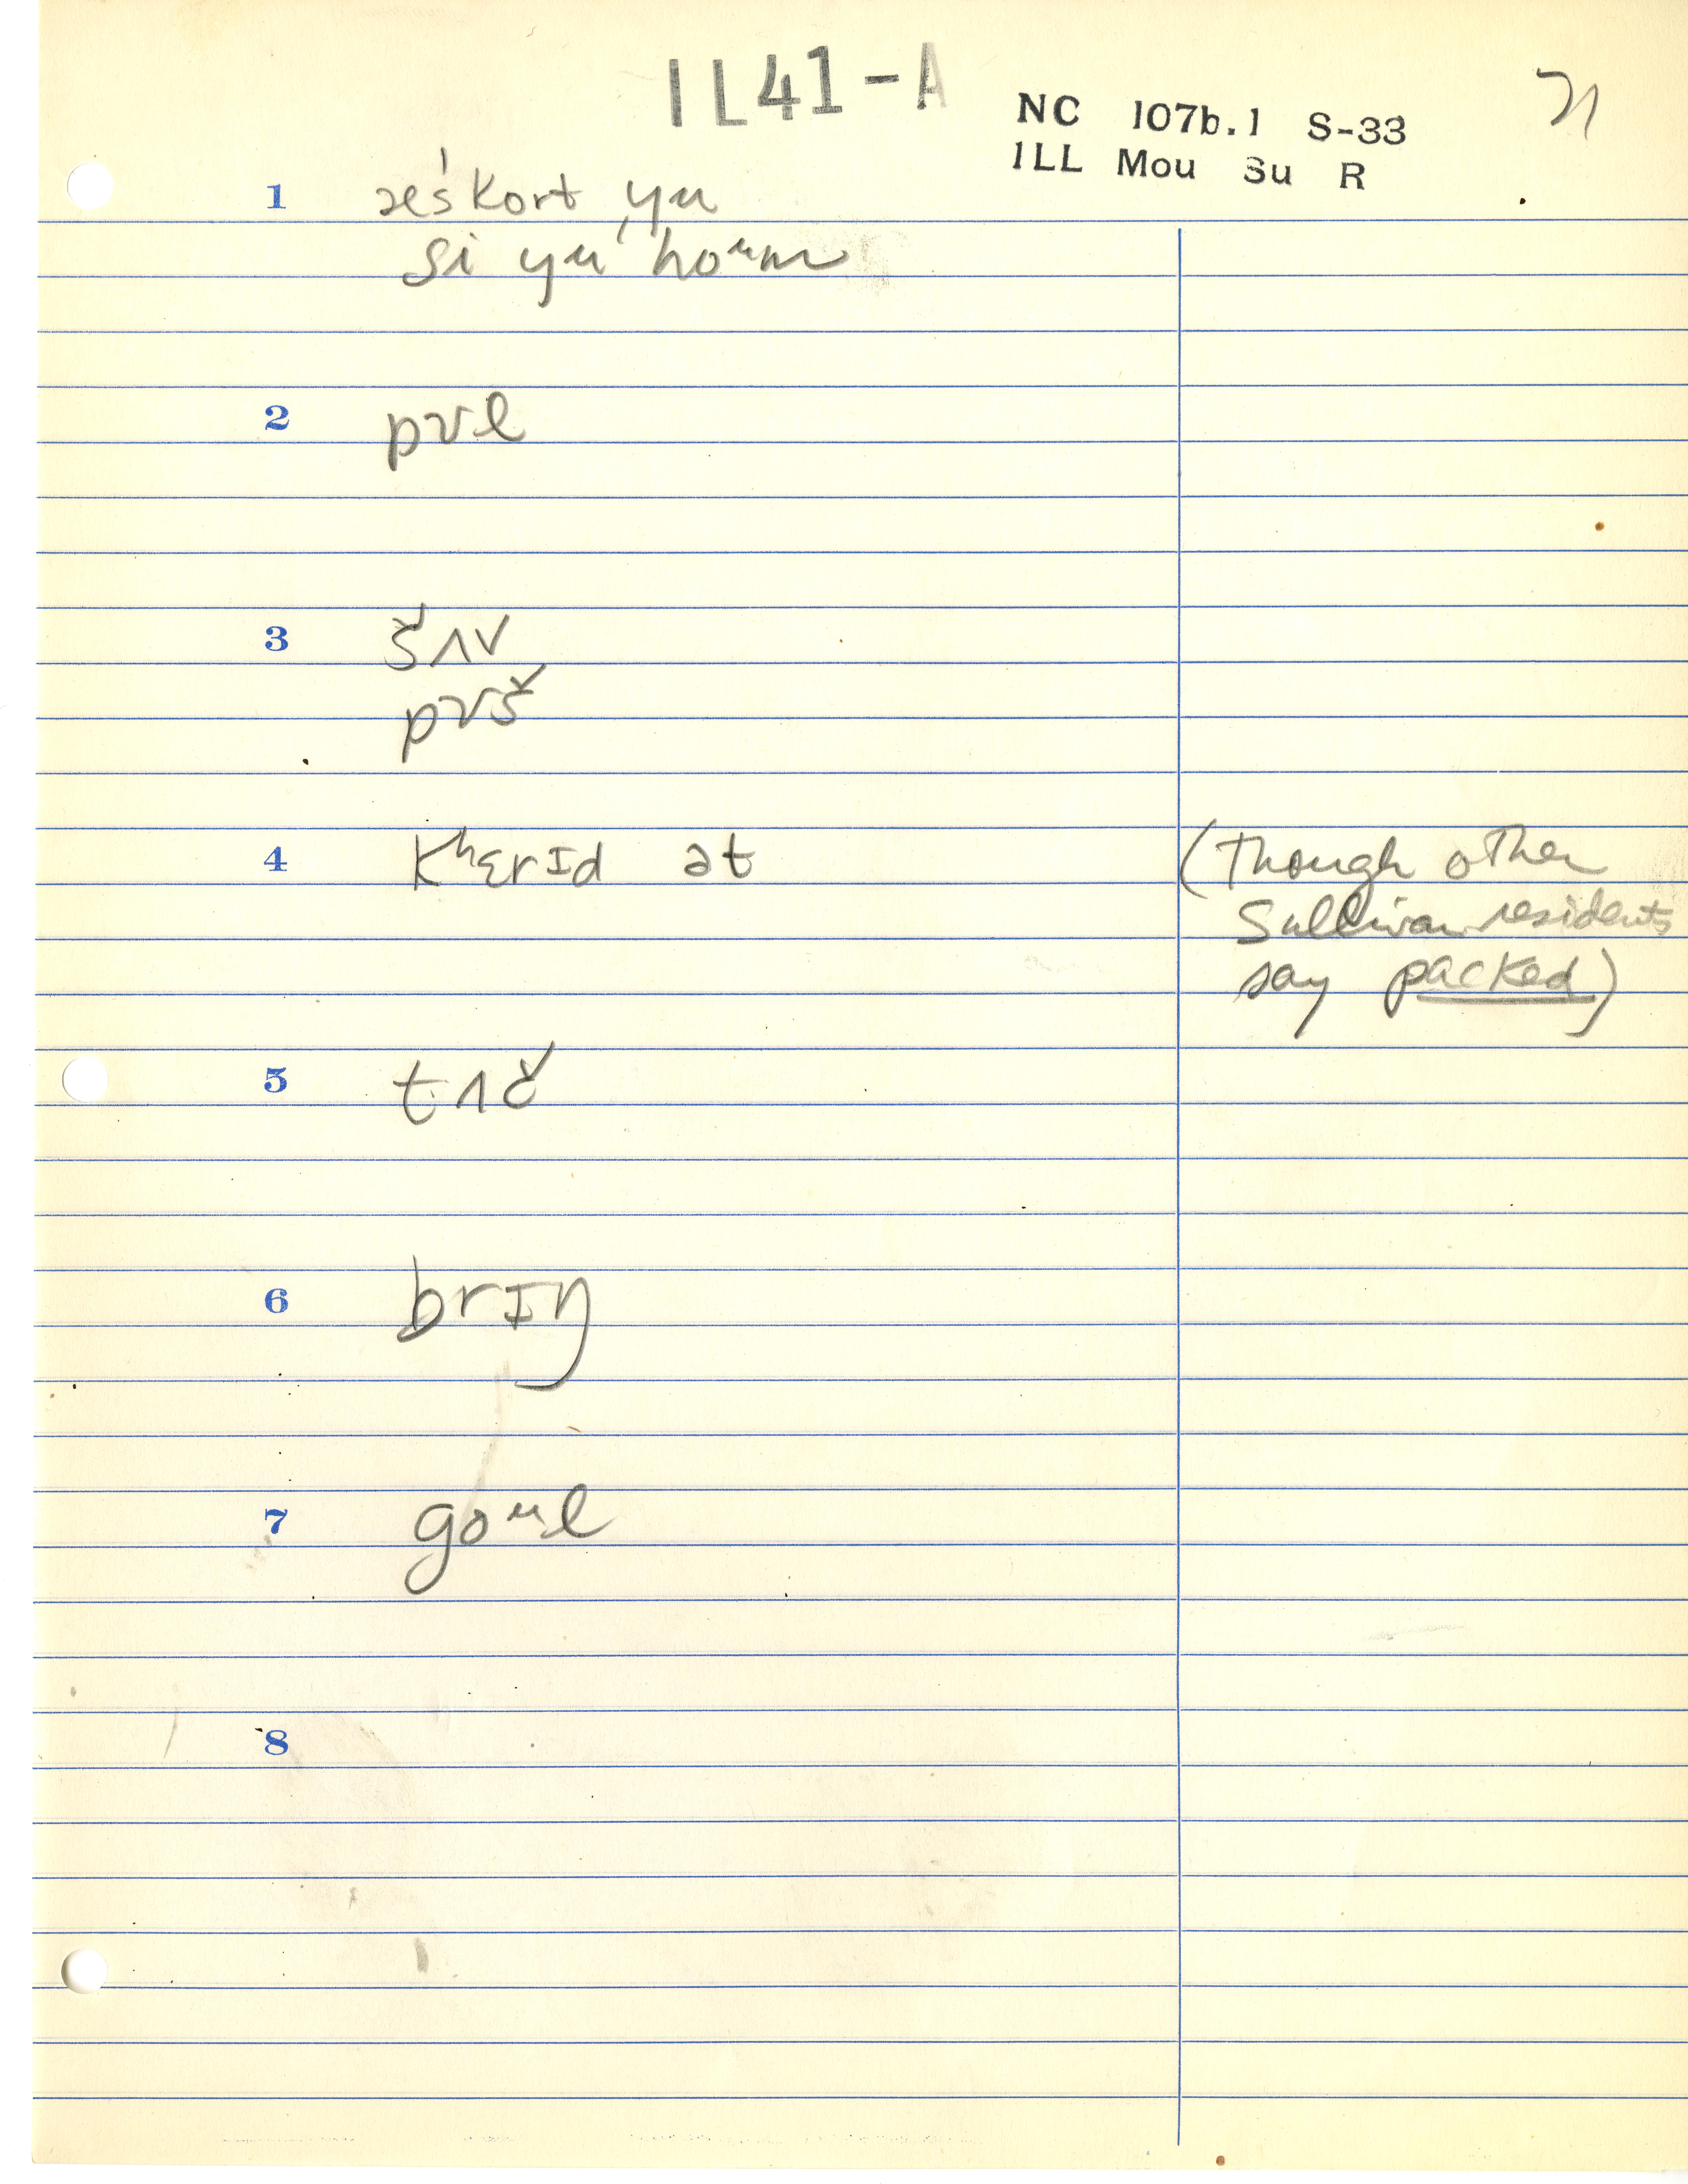 IL41-A
NC 107b.1 S-33
ILL Mou Su R
71
1 æs'kort yu
si yu hoᵘm
2 pʊl
3 šʌv
pʊš
4 kʰɛrɪd ət
(though other
Sullivan residents
say packed)
5 tʌč
6 brɪŋ
7 goᵘl
8